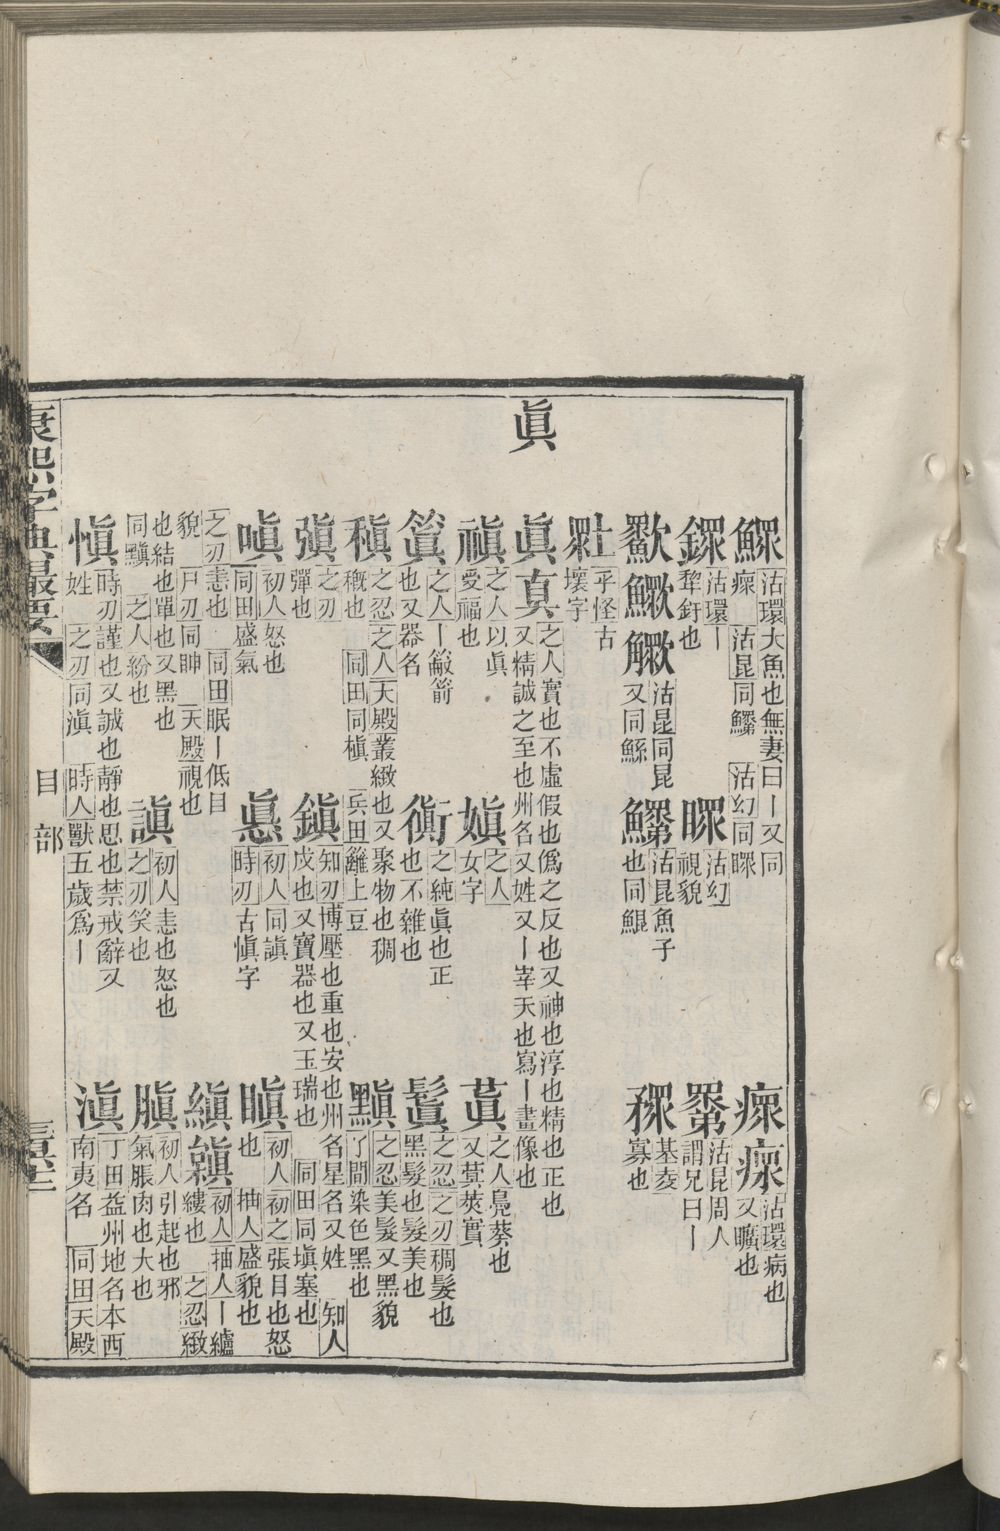 鰥 沽環大魚也無妻曰丨又同瘝 沽昆同鰥 沽幻同瞏
瘝𤸎 沽環病也又曠也
鏍 沽環丨犂釪也
睔 沽幻視貌
沽昆周人謂兄曰丨
沽昆同昆又同鯀
沽昆魚子也同鯤
基夌寡也
乎怪古壞字
眞
眞真 之人實也不虛假也僞之反也又神也淳也精也正也又精誠之至也州名又姓又丨宰天也寫丨畫像也
禛 之人以眞愛福也
嫃 之人女字
蒖 之人鳧葵也又蓂莢實
篢 之人丨籢箭也又器名
衠 之純眞也正也不雜也
鬒 之忍之刃稠髮也黑髮也髮美也
稹 之忍之人天殿叢緻也又聚物也稠穊也 同田同槇 兵田籬上豆
黰 之忍美髮又黑貌了間染色黑也
𢐲 之刃彈也
鎭 知刃博壓也重也安也州名星名又姓 知人戍也又寶器也又玉瑞也 同田同塡塞也
嗔 初人怒也同田盛氣
㥲 初人同謓時刃古愼字
瞋 初人初之張目也怒也 抽人盛貌也
之刃恚也 同田眠丨低目貌 尸刃同眒 天殿視也
縝 初人抽人丨纑縷也 之忍緻也結也單也又黑也同黰 之人紛也
謓 初人恚也怒也之刃笑也
䐜 初人引起也邪氣脹肉也大也
愼 時刃謹也又誠也靜也思也禁戒辭又姓 之刃同滇 時人獸五歲爲丨
滇 丁田益州地名本西南夷名 同田天殿
康熙字典撮要 目部